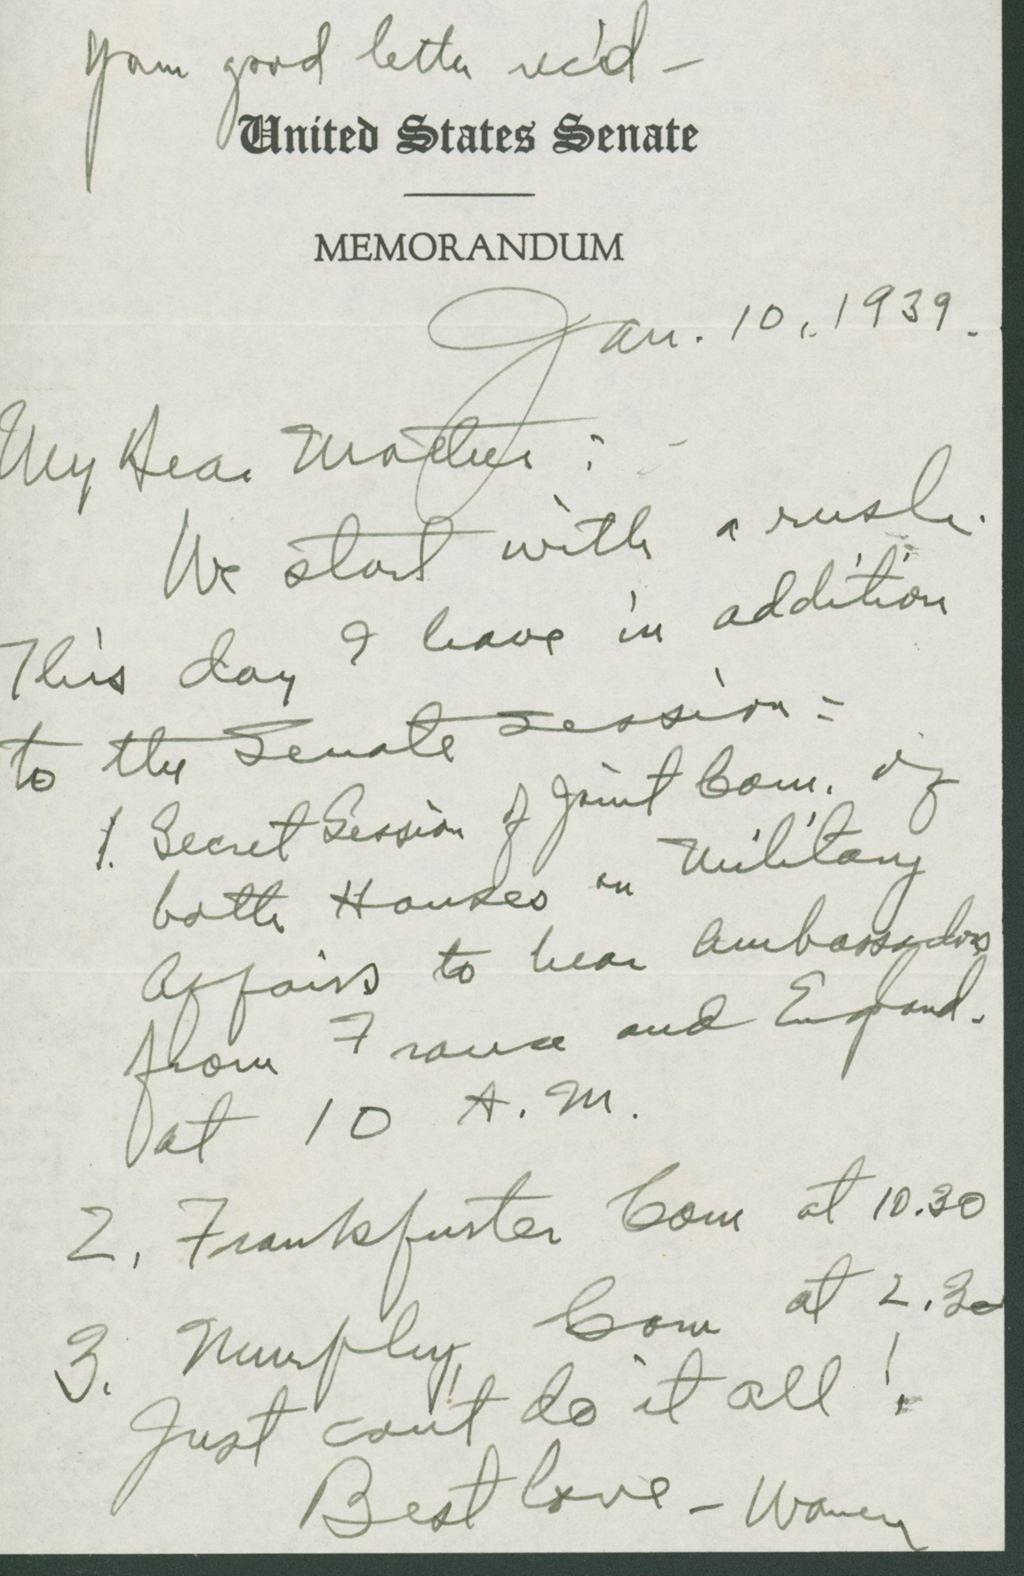 Your good letter rec'd -
United States Senate
MEMORANDUM
Jan. 10, 1939.
My Dear Mother :
We start with a rush.
This day I have in addition
to the Senate session =
1. Secret Session of Joint Com. of
both Houses on Military
Affairs to hear Ambassadors
from France and England.
at 10 A.M.
2. Frankfurter Com at 10.30
3. Murphy Com at 2.30
Just can't do it all !
Best love - Warren